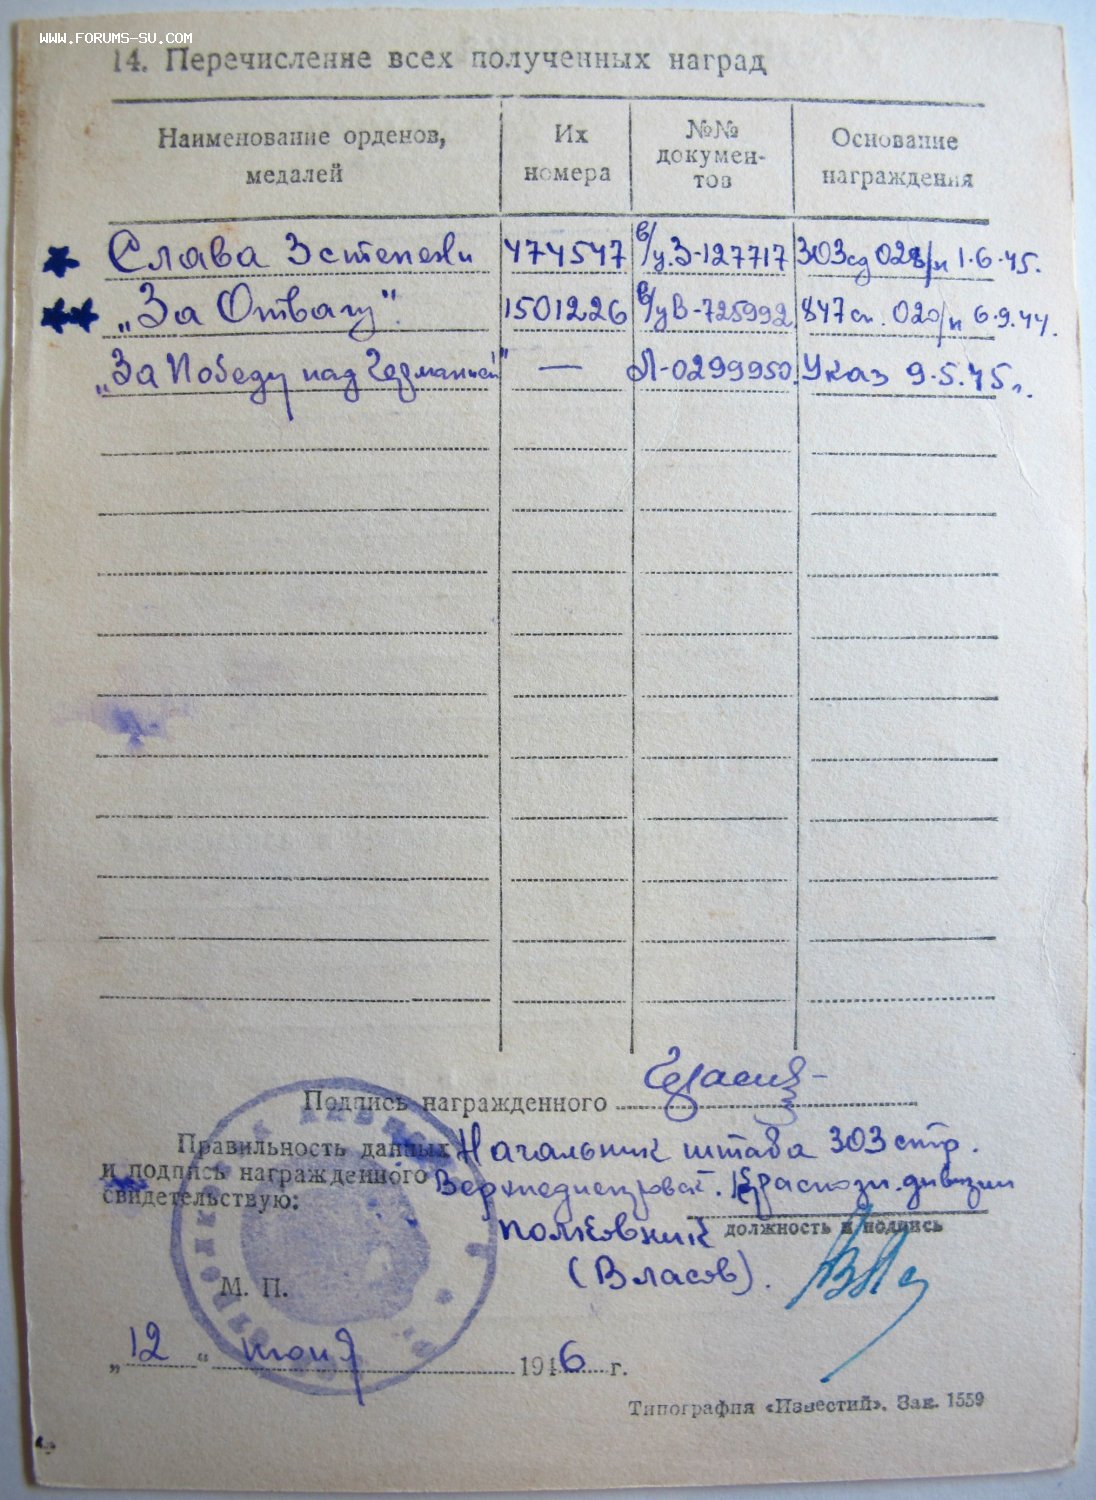 WWW.FORUMS-SU.COM
14. Перечисление всех полученных наград
Наименование орденов, медалей
Их номера
№№ документов
Основание награждения
Слава 3 степени 474547 в/у З-127717 303 сд 028/н 1.6.45.
"За Отвагу". 1501226 в/у В-725992 847 сп. 020/н 6.9.44.
"За Победу над Германией" — Л-0299950. Указ 9.5.45 г.
Подпись награжденного
Правильность данных Начальник штаба 303 стр.
и подпись награжденного Верхнеднепровск. Краснозн. дивизии
свидетельствую:
полковник должность и подпись
(Власов).
М. П.
"12" июня 1946 г.
Типография «Известий». Зак. 1559